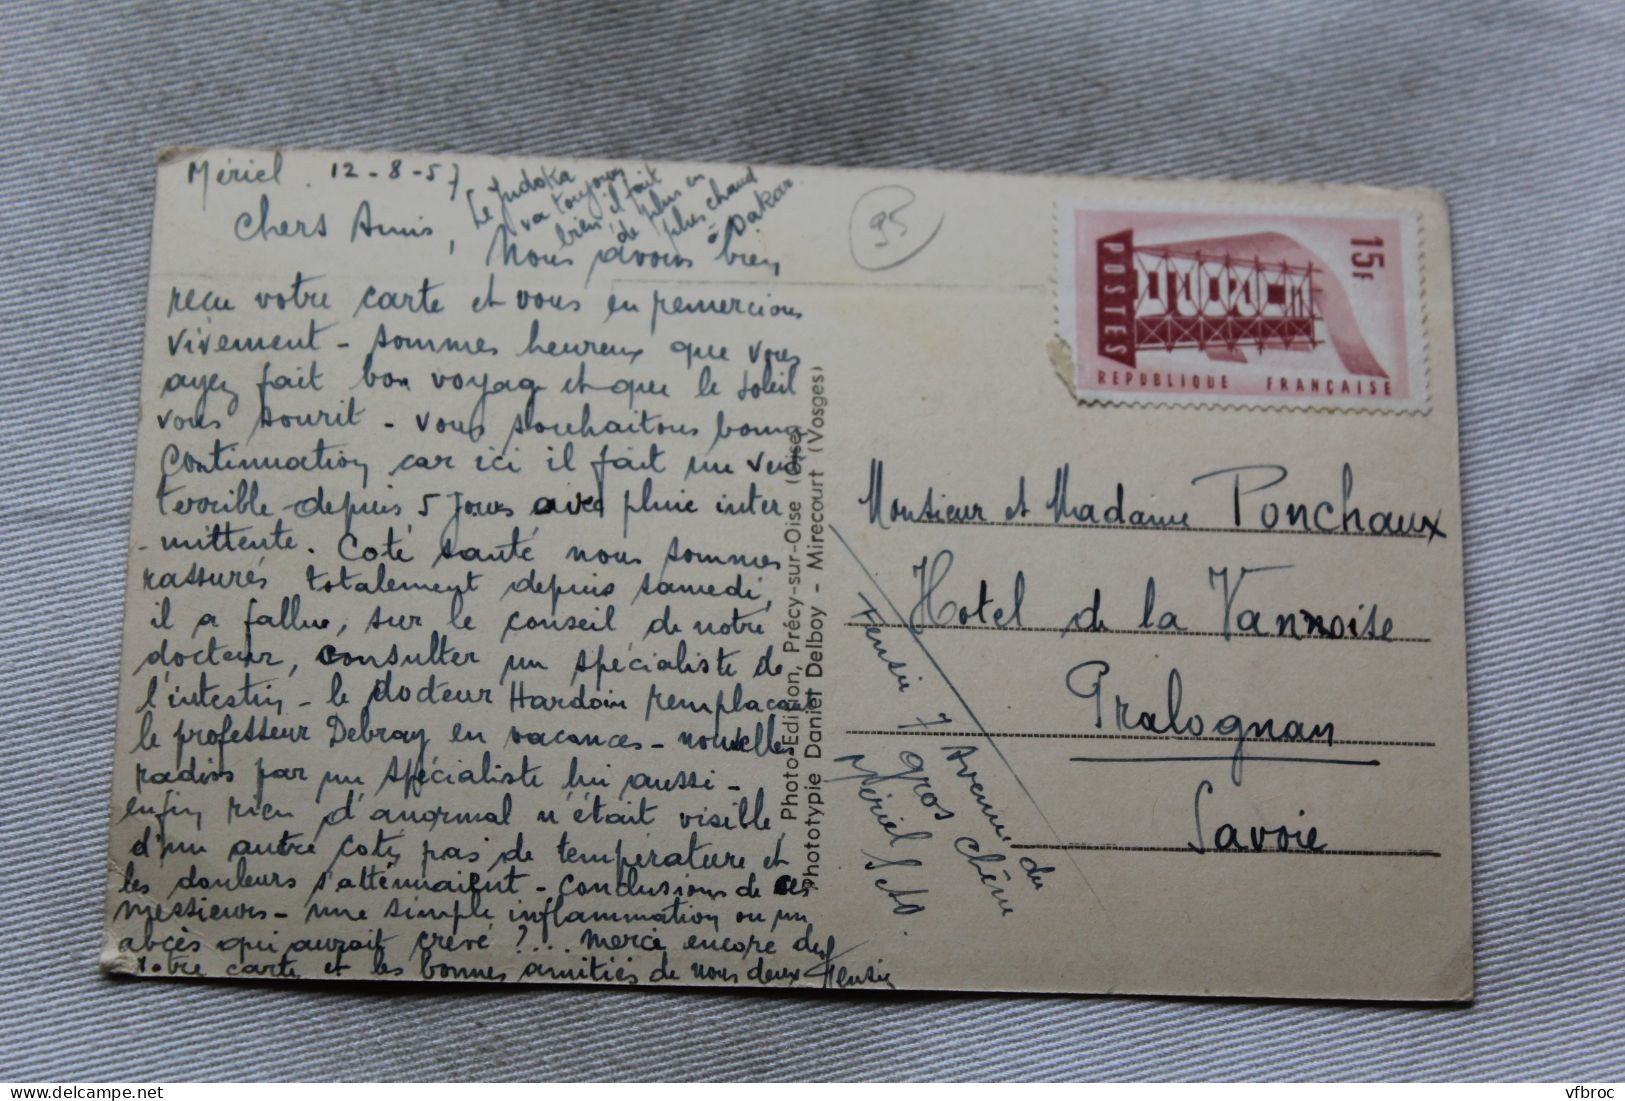 Mériel. 12-8-57
Le Judoka
va toujours
bien il fait
de plus en
plus chaud
à Dakar.
Chers Amis,
Nous avons bien
reçu votre carte et vous en remercions
vivement - sommes heureux que vous
ayez fait bon voyage et que le soleil
vous sourit - vous souhaitons bonne
continuation car ici il fait un vent
terrible depuis 5 jours avec pluie inter
-mittente. Coté santé nous sommes
rassurés totalement depuis samedi,
il a fallue, sur le conseil de notre
docteur, consulter un spécialiste de
l'intestin - le docteur Hardoin remplaçant
le professeur Debray en vacances - nouvelles
radios par un spécialiste lui aussi -
enfin rien d'anormal n'était visible,
d'un autre coté pas de température et
les douleurs s'atténuaient - conclusions de ces
messieurs - une simple inflammation ou un
abcès qui aurait crevé ?... merci encore de
votre carte et les bonnes amitiés de nous deux
Photo Edition, Précy-sur-Oise (Oise)
Phototypie Daniel Delboy - Mirecourt (Vosges)
95
15F
POSTES
REPUBLIQUE FRANÇAISE
Monsieur et Madame Ponchaux
Hotel de la Vannoise
Pralognan
Savoie
7 Avenue du
gros chêne
Mériel S et O.